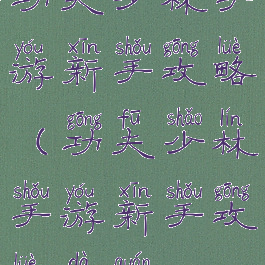 功夫少林手
yóu xīn shǒu gōng lüè
游新手攻略
gōng fū shǎo lín
(功夫少林
shǒu yóu xīn shǒu gōng
手游新手攻
lüè dà quán